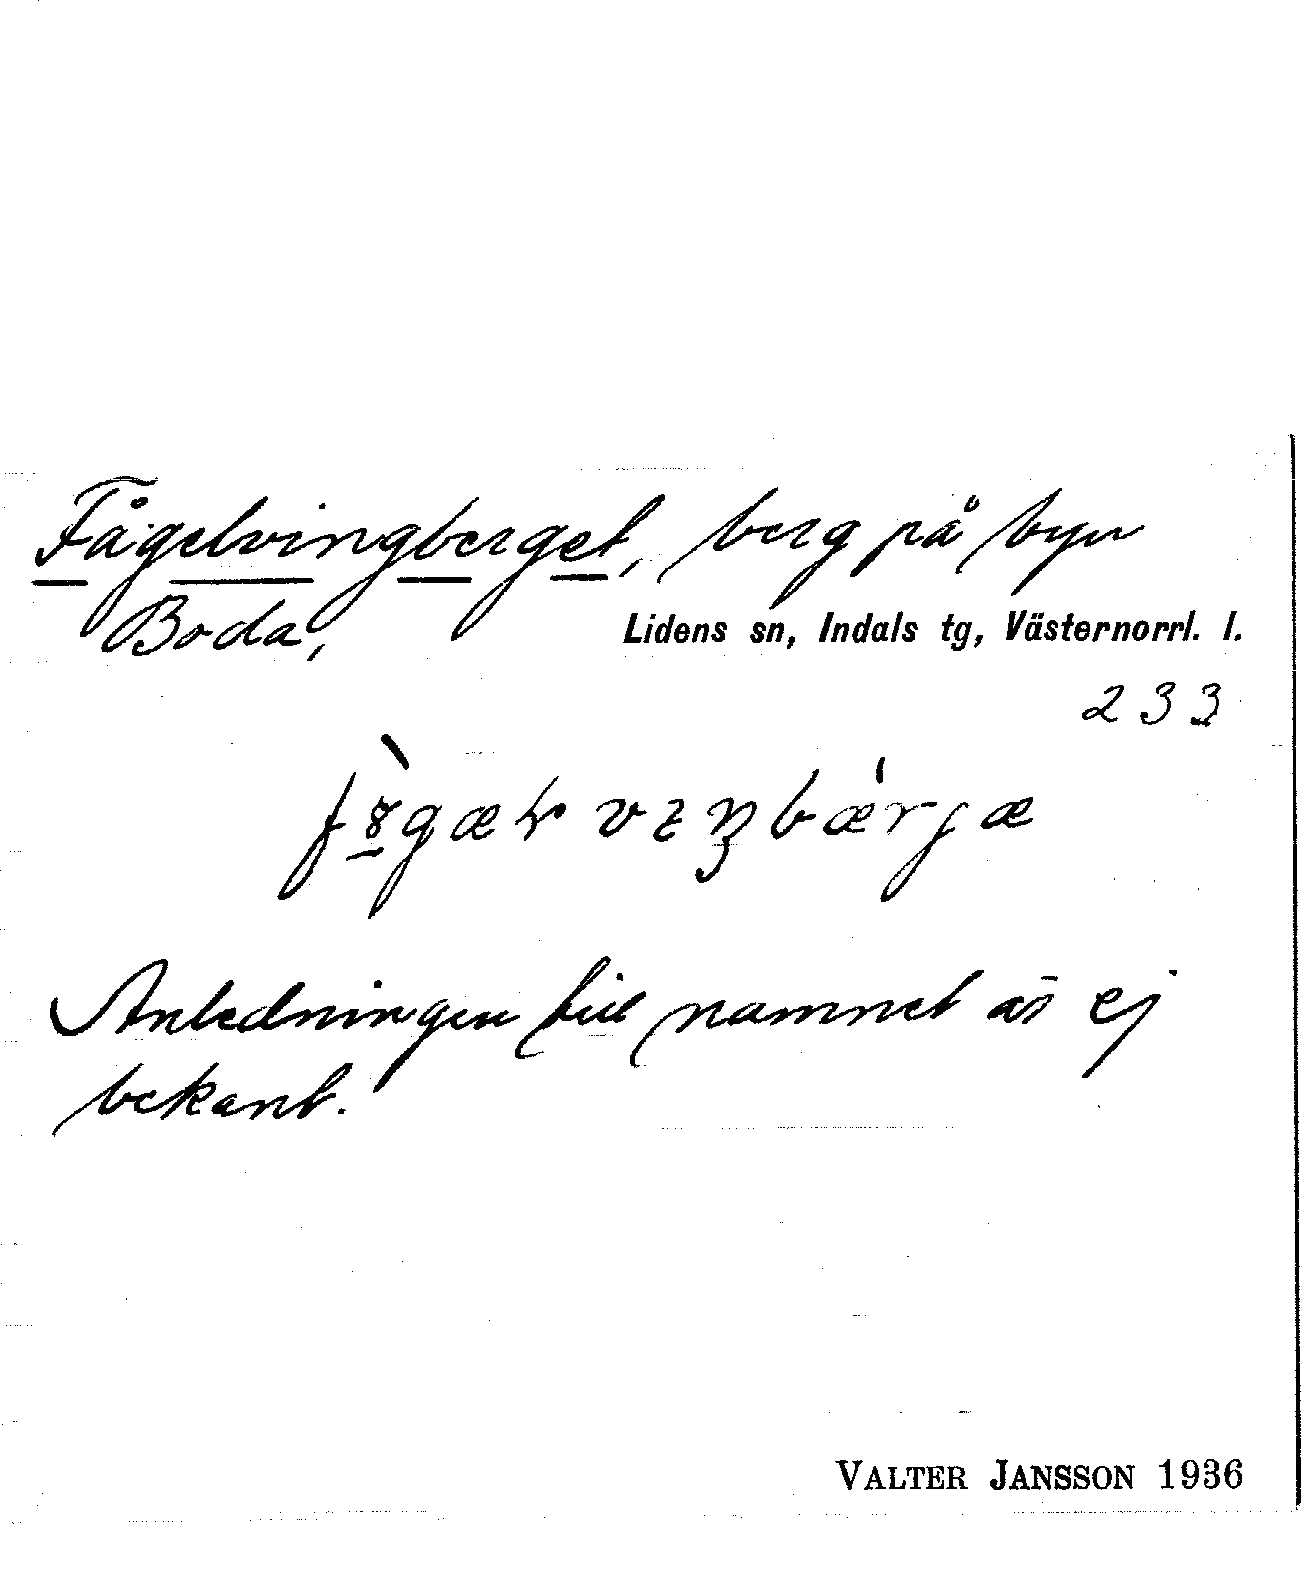 Fågelvingberget, berg på byn
Boda, Lidens sn, Indals tg, Västernorrl. l.
233
Anledningen till namnet är ej
bekant.
VALTER JANSSON 1936